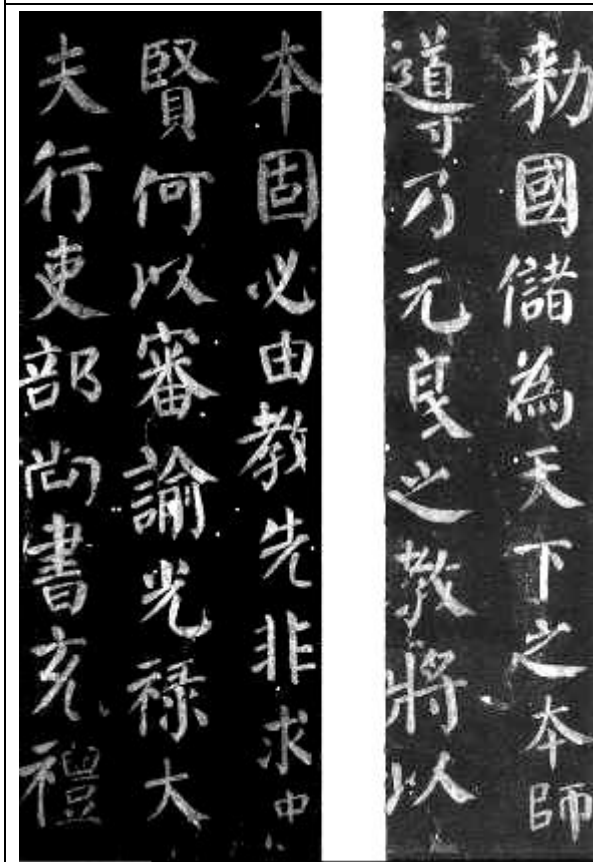 勅國儲為天下之本師
導乃元良之教將以
本固必由教先非求忠
賢何以審諭光祿大
夫行吏部尚書充禮